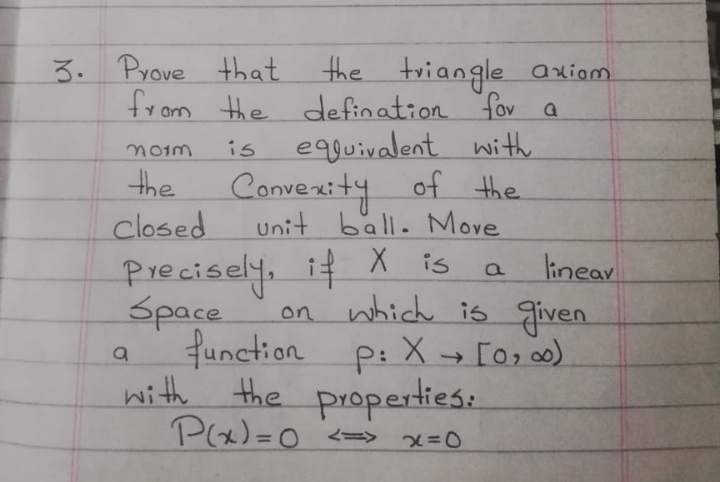 3. Prove that the triangle axiom
from the defination for a
norm is eqquivalent with
the Convexity of the
closed unit ball. More
precisely, if X is a linear
Space on which is given
a function p: X → [0, ∞)
with the properties:
P(x) = 0 <=> x=0